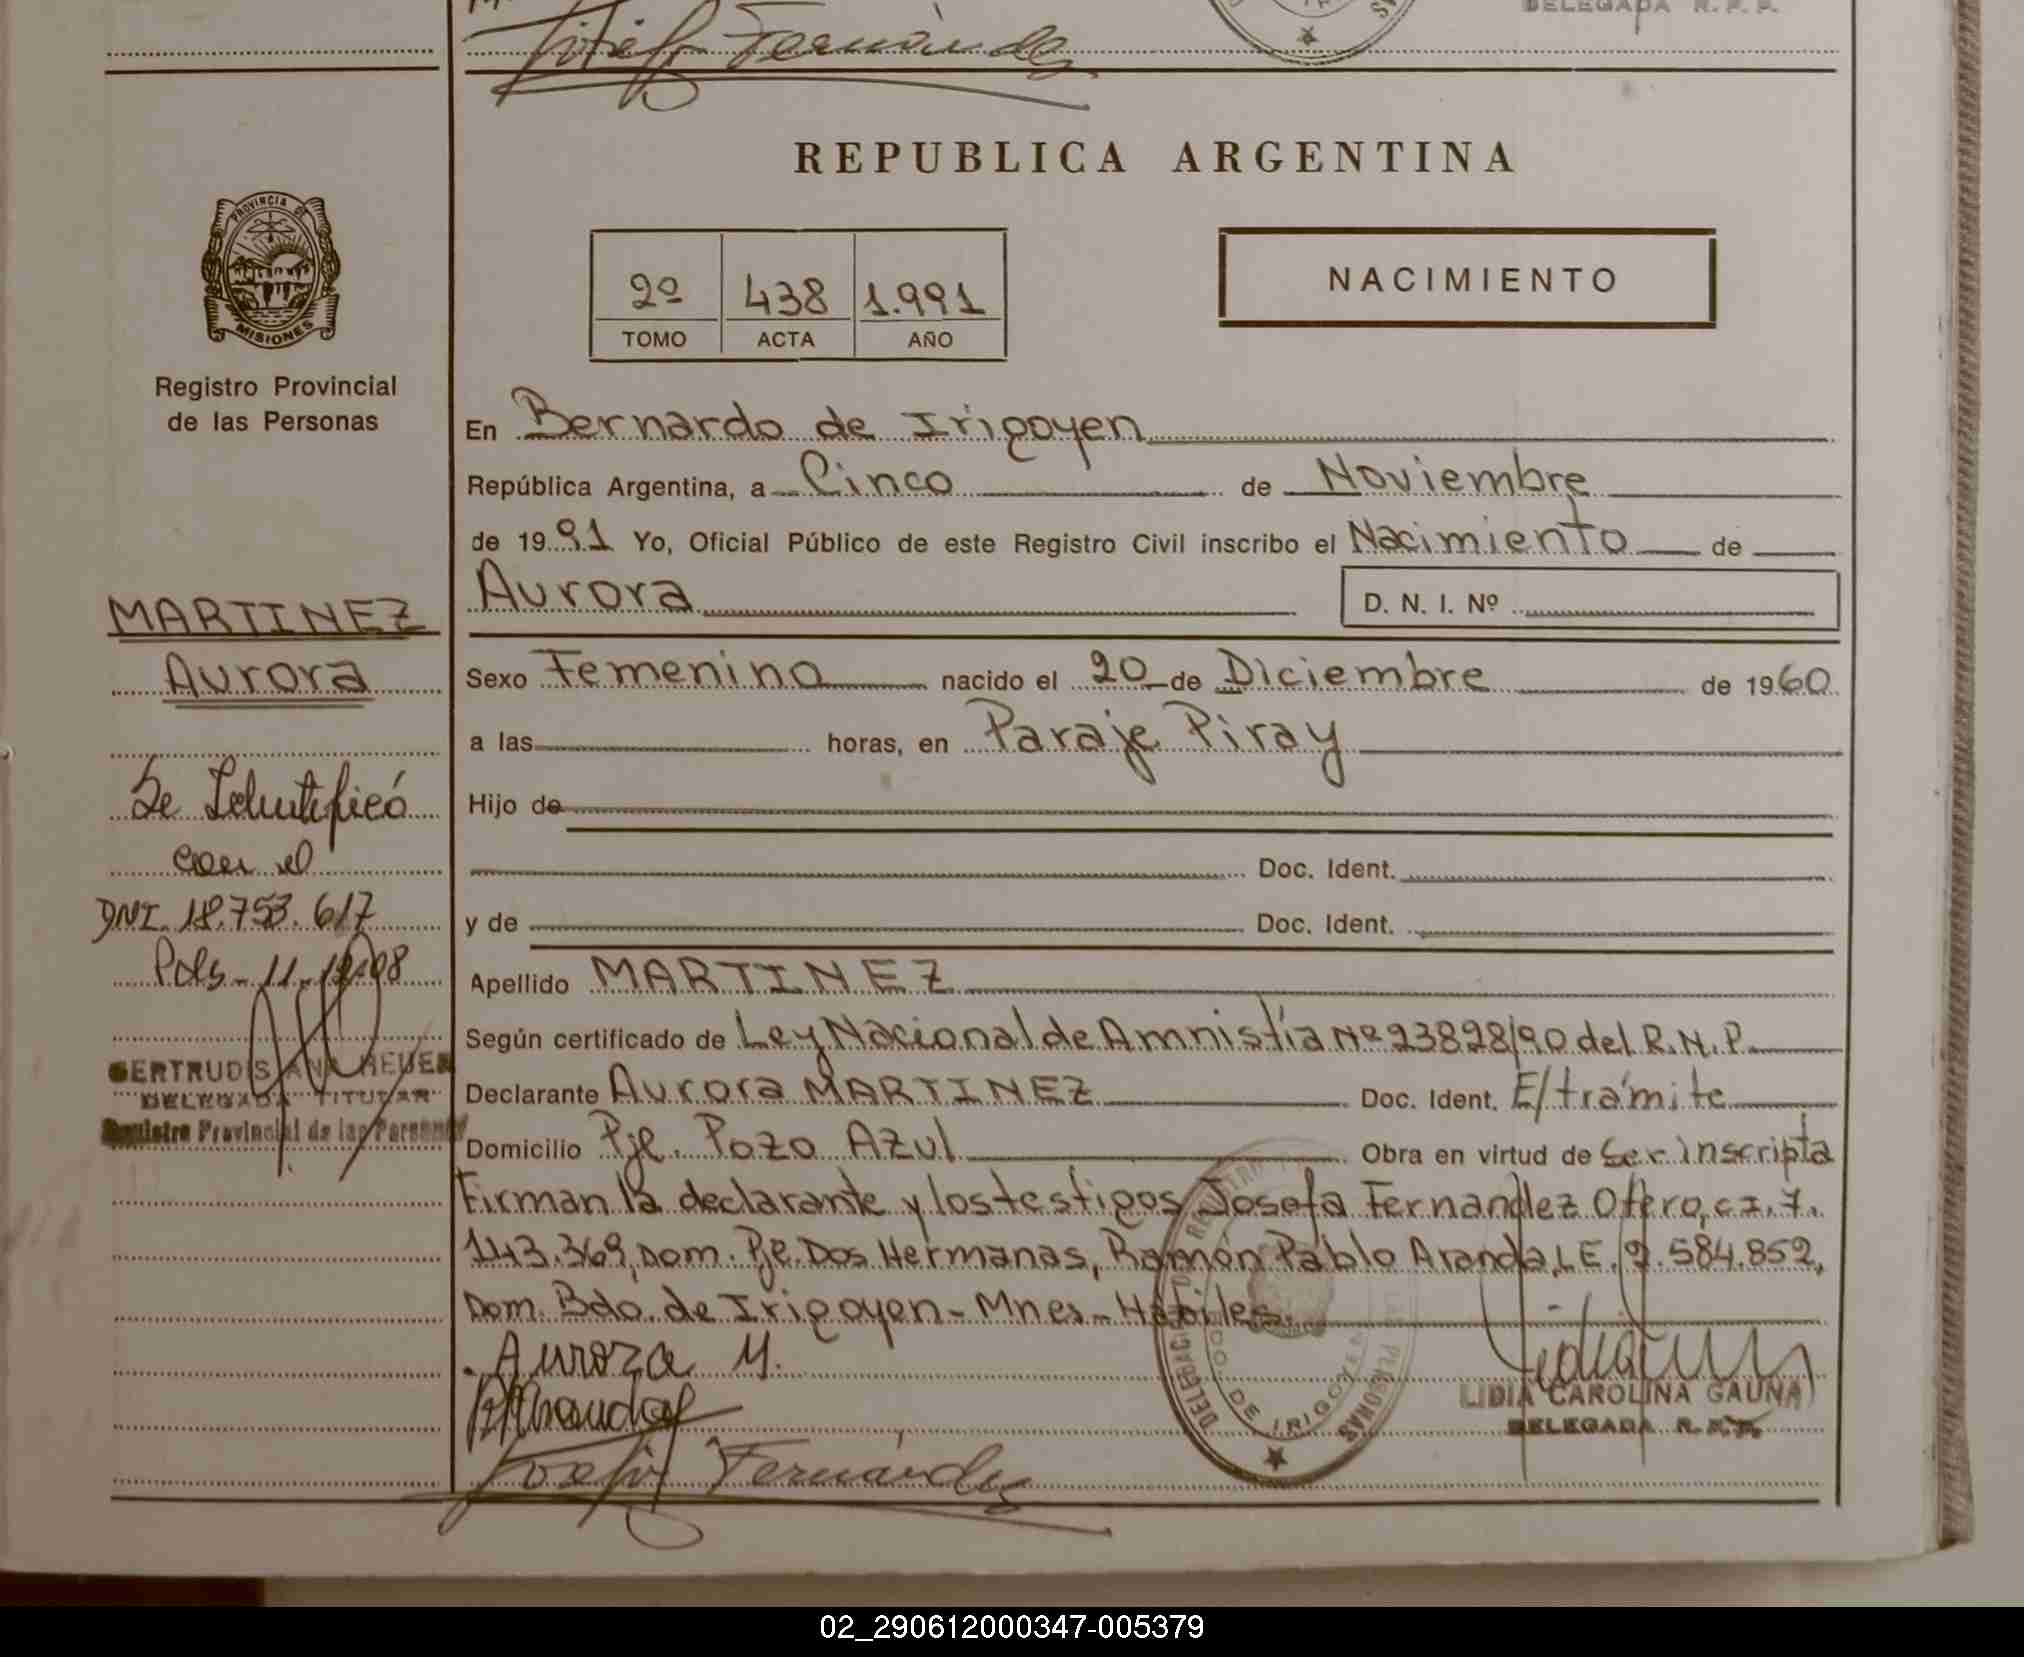 DELEGADA R. P. P.
Josefa Fernández
REPUBLICA ARGENTINA
PROVINCIA DE
MISIONES
Registro Provincial
de las Personas
2º 438 1.991
TOMO ACTA AÑO
NACIMIENTO
En Bernardo de Irigoyen
República Argentina, a Cinco de Noviembre
de 1991 Yo, Oficial Público de este Registro Civil inscribo el Nacimiento de
Aurora D. N. I. Nº
MARTINEZ
Aurora
Sexo Femenino nacido el 20 de Diciembre de 1960
a las horas, en Paraje Piray
Se Identificó
con el
DNI. 18.753.617
Hijo de
Doc. Ident.
y de Doc. Ident.
Apellido MARTINEZ
Según certificado de Ley Nacional de Amnistía Nº 23828/90 del R.N.P.
GERTRUDIS ANA
DELEGADA TITULAR
Registro Provincial de las Personas
Declarante Aurora MARTINEZ Doc. Ident. E/trámite
Domicilio Pje. Pozo Azul Obra en virtud de ser inscripta
Firman la declarante y los testigos Josefa Fernandez Otero, C.I. 7.
143.369, Dom. Pje. Dos Hermanas, Ramón Pablo Aranda, L.E. 7.584.852,
Dom. Bdo. de Irigoyen - Mnes - Hábiles.
Aurora M.
Josefa Fernández
BDO. DE IRIGOYEN
LIDIA CAROLINA GAUNA
DELEGADA R.P.P.
02_290612000347-005379